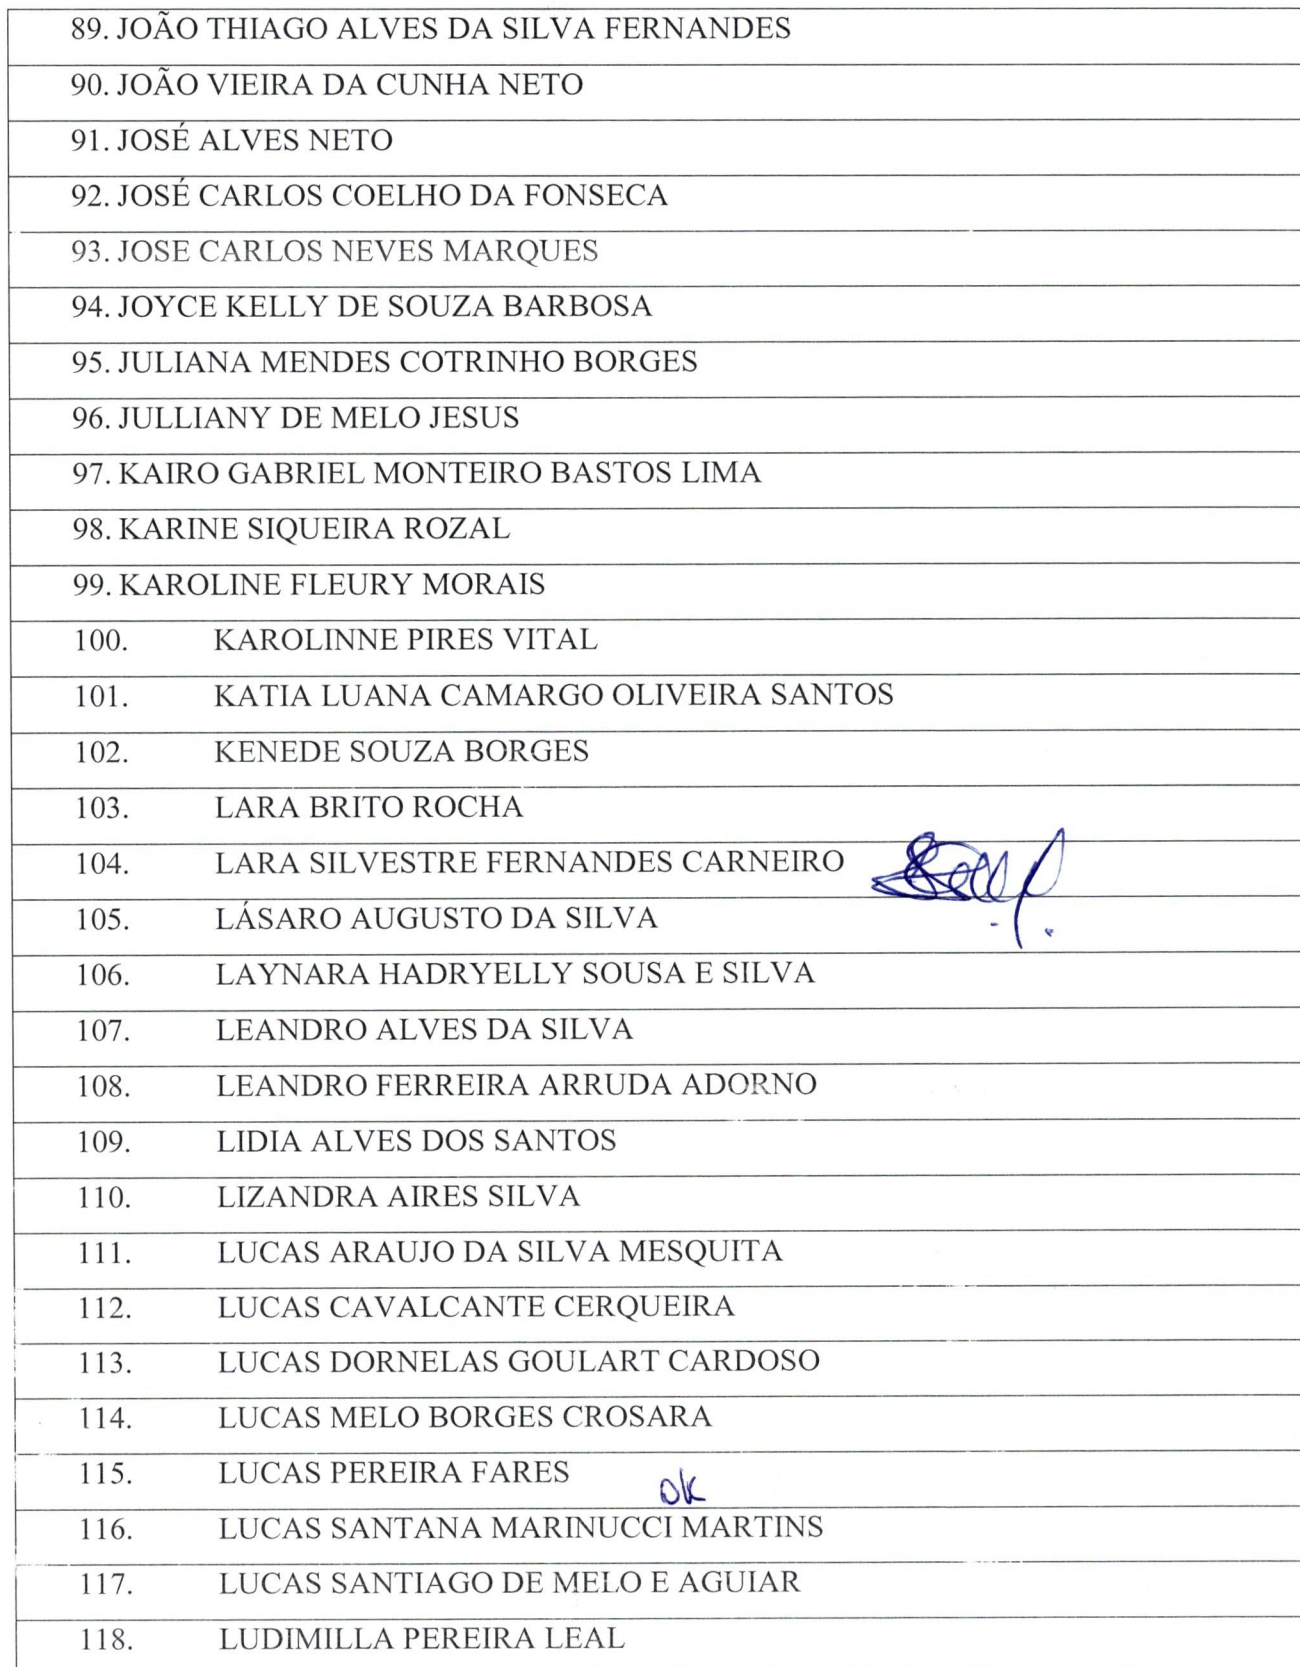 89. JOÃO THIAGO ALVES DA SILVA FERNANDES
90. JOÃO VIEIRA DA CUNHA NETO
91. JOSÉ ALVES NETO
92. JOSÉ CARLOS COELHO DA FONSECA
93. JOSE CARLOS NEVES MARQUES
94. JOYCE KELLY DE SOUZA BARBOSA
95. JULIANA MENDES COTRINHO BORGES
96. JULLIANY DE MELO JESUS
97. KAIRO GABRIEL MONTEIRO BASTOS LIMA
98. KARINE SIQUEIRA ROZAL
99. KAROLINE FLEURY MORAIS
100. KAROLINNE PIRES VITAL
101. KATIA LUANA CAMARGO OLIVEIRA SANTOS
102. KENEDE SOUZA BORGES
103. LARA BRITO ROCHA
104. LARA SILVESTRE FERNANDES CARNEIRO
105. LÁSARO AUGUSTO DA SILVA
106. LAYNARA HADRYELLY SOUSA E SILVA
107. LEANDRO ALVES DA SILVA
108. LEANDRO FERREIRA ARRUDA ADORNO
109. LIDIA ALVES DOS SANTOS
110. LIZANDRA AIRES SILVA
111. LUCAS ARAUJO DA SILVA MESQUITA
112. LUCAS CAVALCANTE CERQUEIRA
113. LUCAS DORNELAS GOULART CARDOSO
114. LUCAS MELO BORGES CROSARA
115. LUCAS PEREIRA FARES
OK
116. LUCAS SANTANA MARINUCCI MARTINS
117. LUCAS SANTIAGO DE MELO E AGUIAR
118. LUDIMILLA PEREIRA LEAL